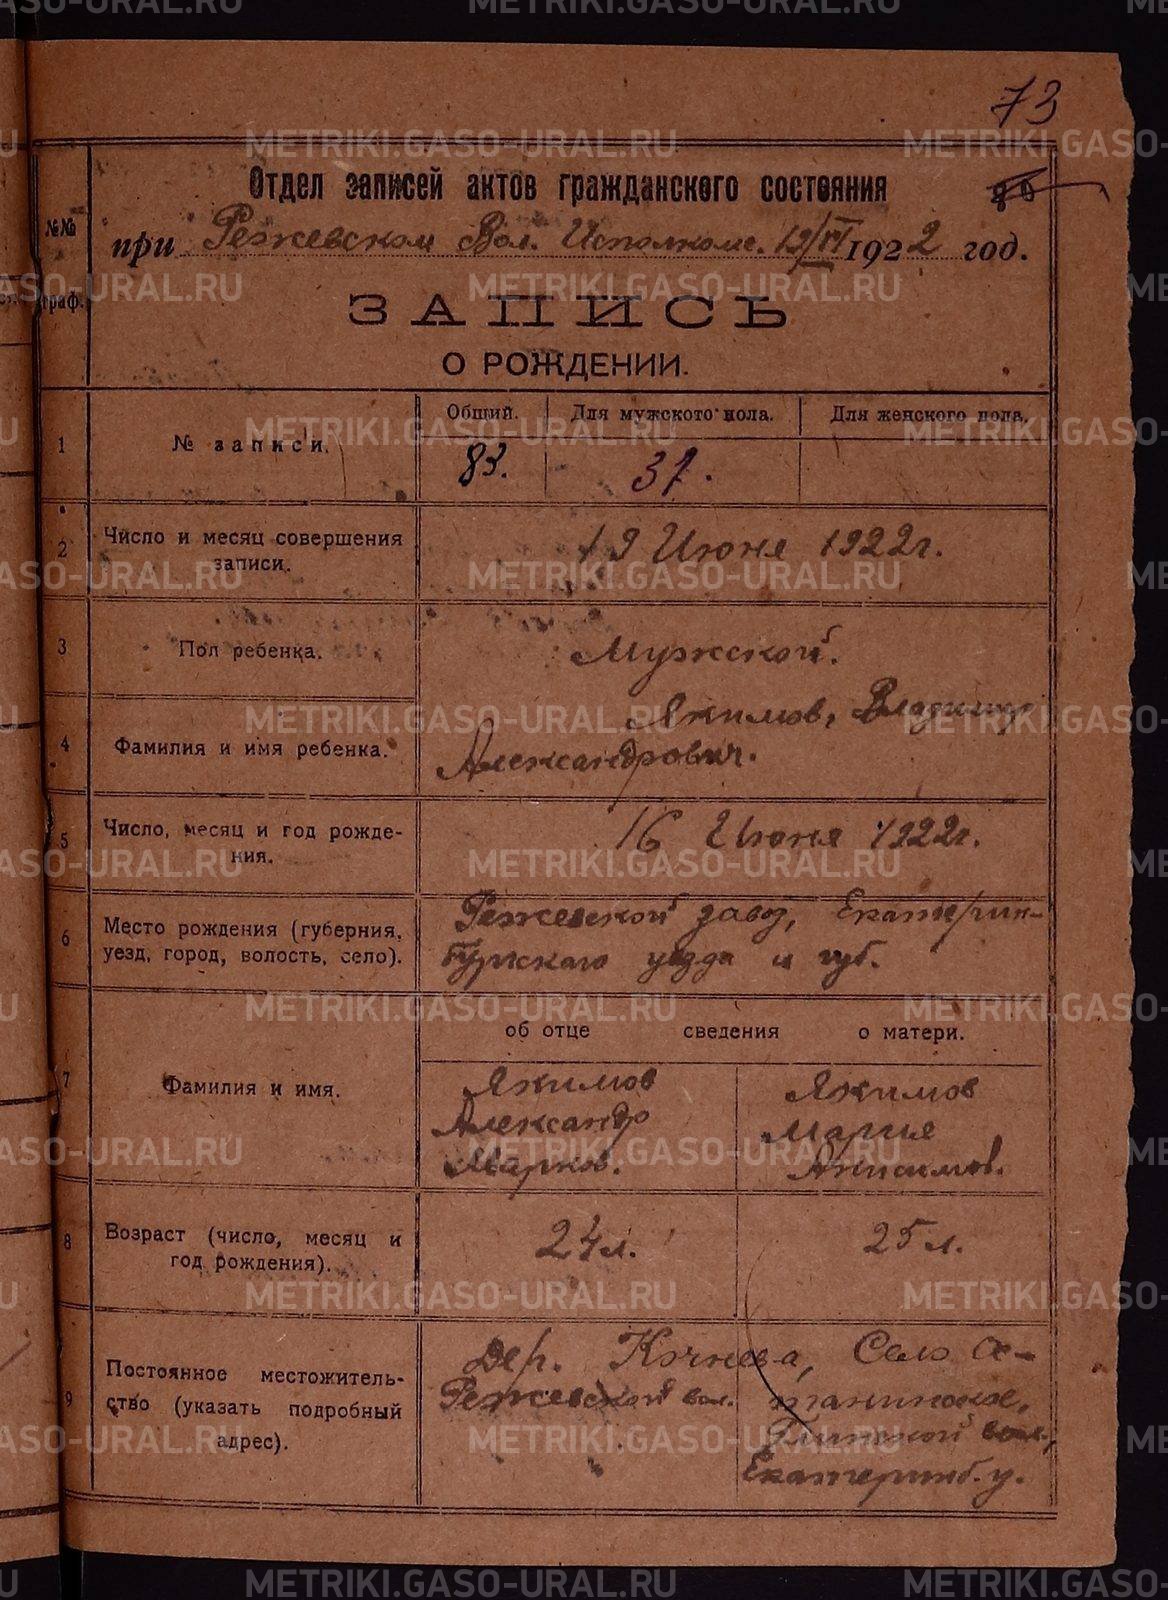 73
Отдел записей актов гражданского состояния
№№ граф.
при Режевском Вол. Исполкоме. 19/VI 1922 год.
ЗАПИСЬ
О РОЖДЕНИИ.
1
№ записи.
Общий.
Для мужского пола.
Для женского пола.
83.
37.
2
Число и месяц совершения
записи.
19 Июня 1922г.
3
Пол ребенка.
Мужской.
4
Фамилия и имя ребенка.
Якимов, Владимир
Александрович.
5
Число, месяц и год рожде-
ния.
16 Июня 1922г.
6
Место рождения (губерния,
уезд, город, волость, село).
Режевской завод, Екатерин-
бургскаго уезда и губ.
об отце сведения о матери.
7
Фамилия и имя.
Якимов
Александр
Марков.
Якимов
Мария
Анисимов.
8
Возраст (число, месяц и
год рождения).
24л.
25л.
9
Постоянное местожитель-
ство (указать подробный
адрес).
Дер. Кочнева,
Режевской вол.
Село
Глинской вол.,
Екатеринб. у.
METRIKI.GASO-URAL.RU